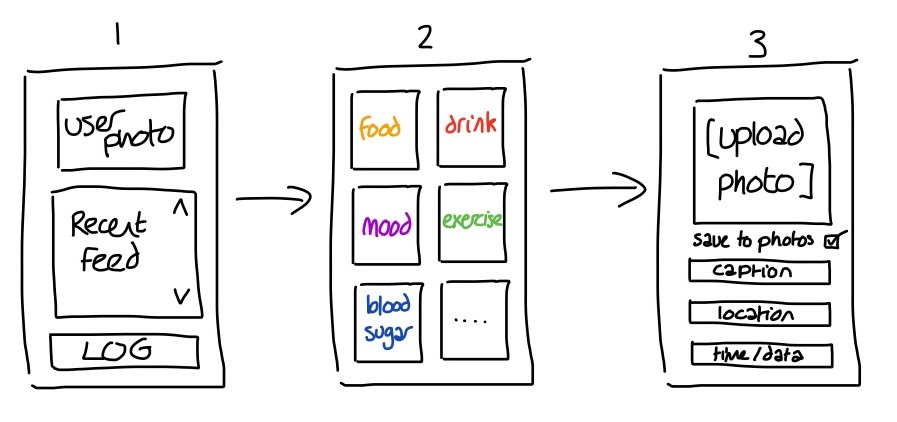 1
2
3
User
photo
Recent
Feed
LOG
food
drink
mood
exercise
blood
sugar
....
[upload
photo]
save to photos
caption
location
time/data